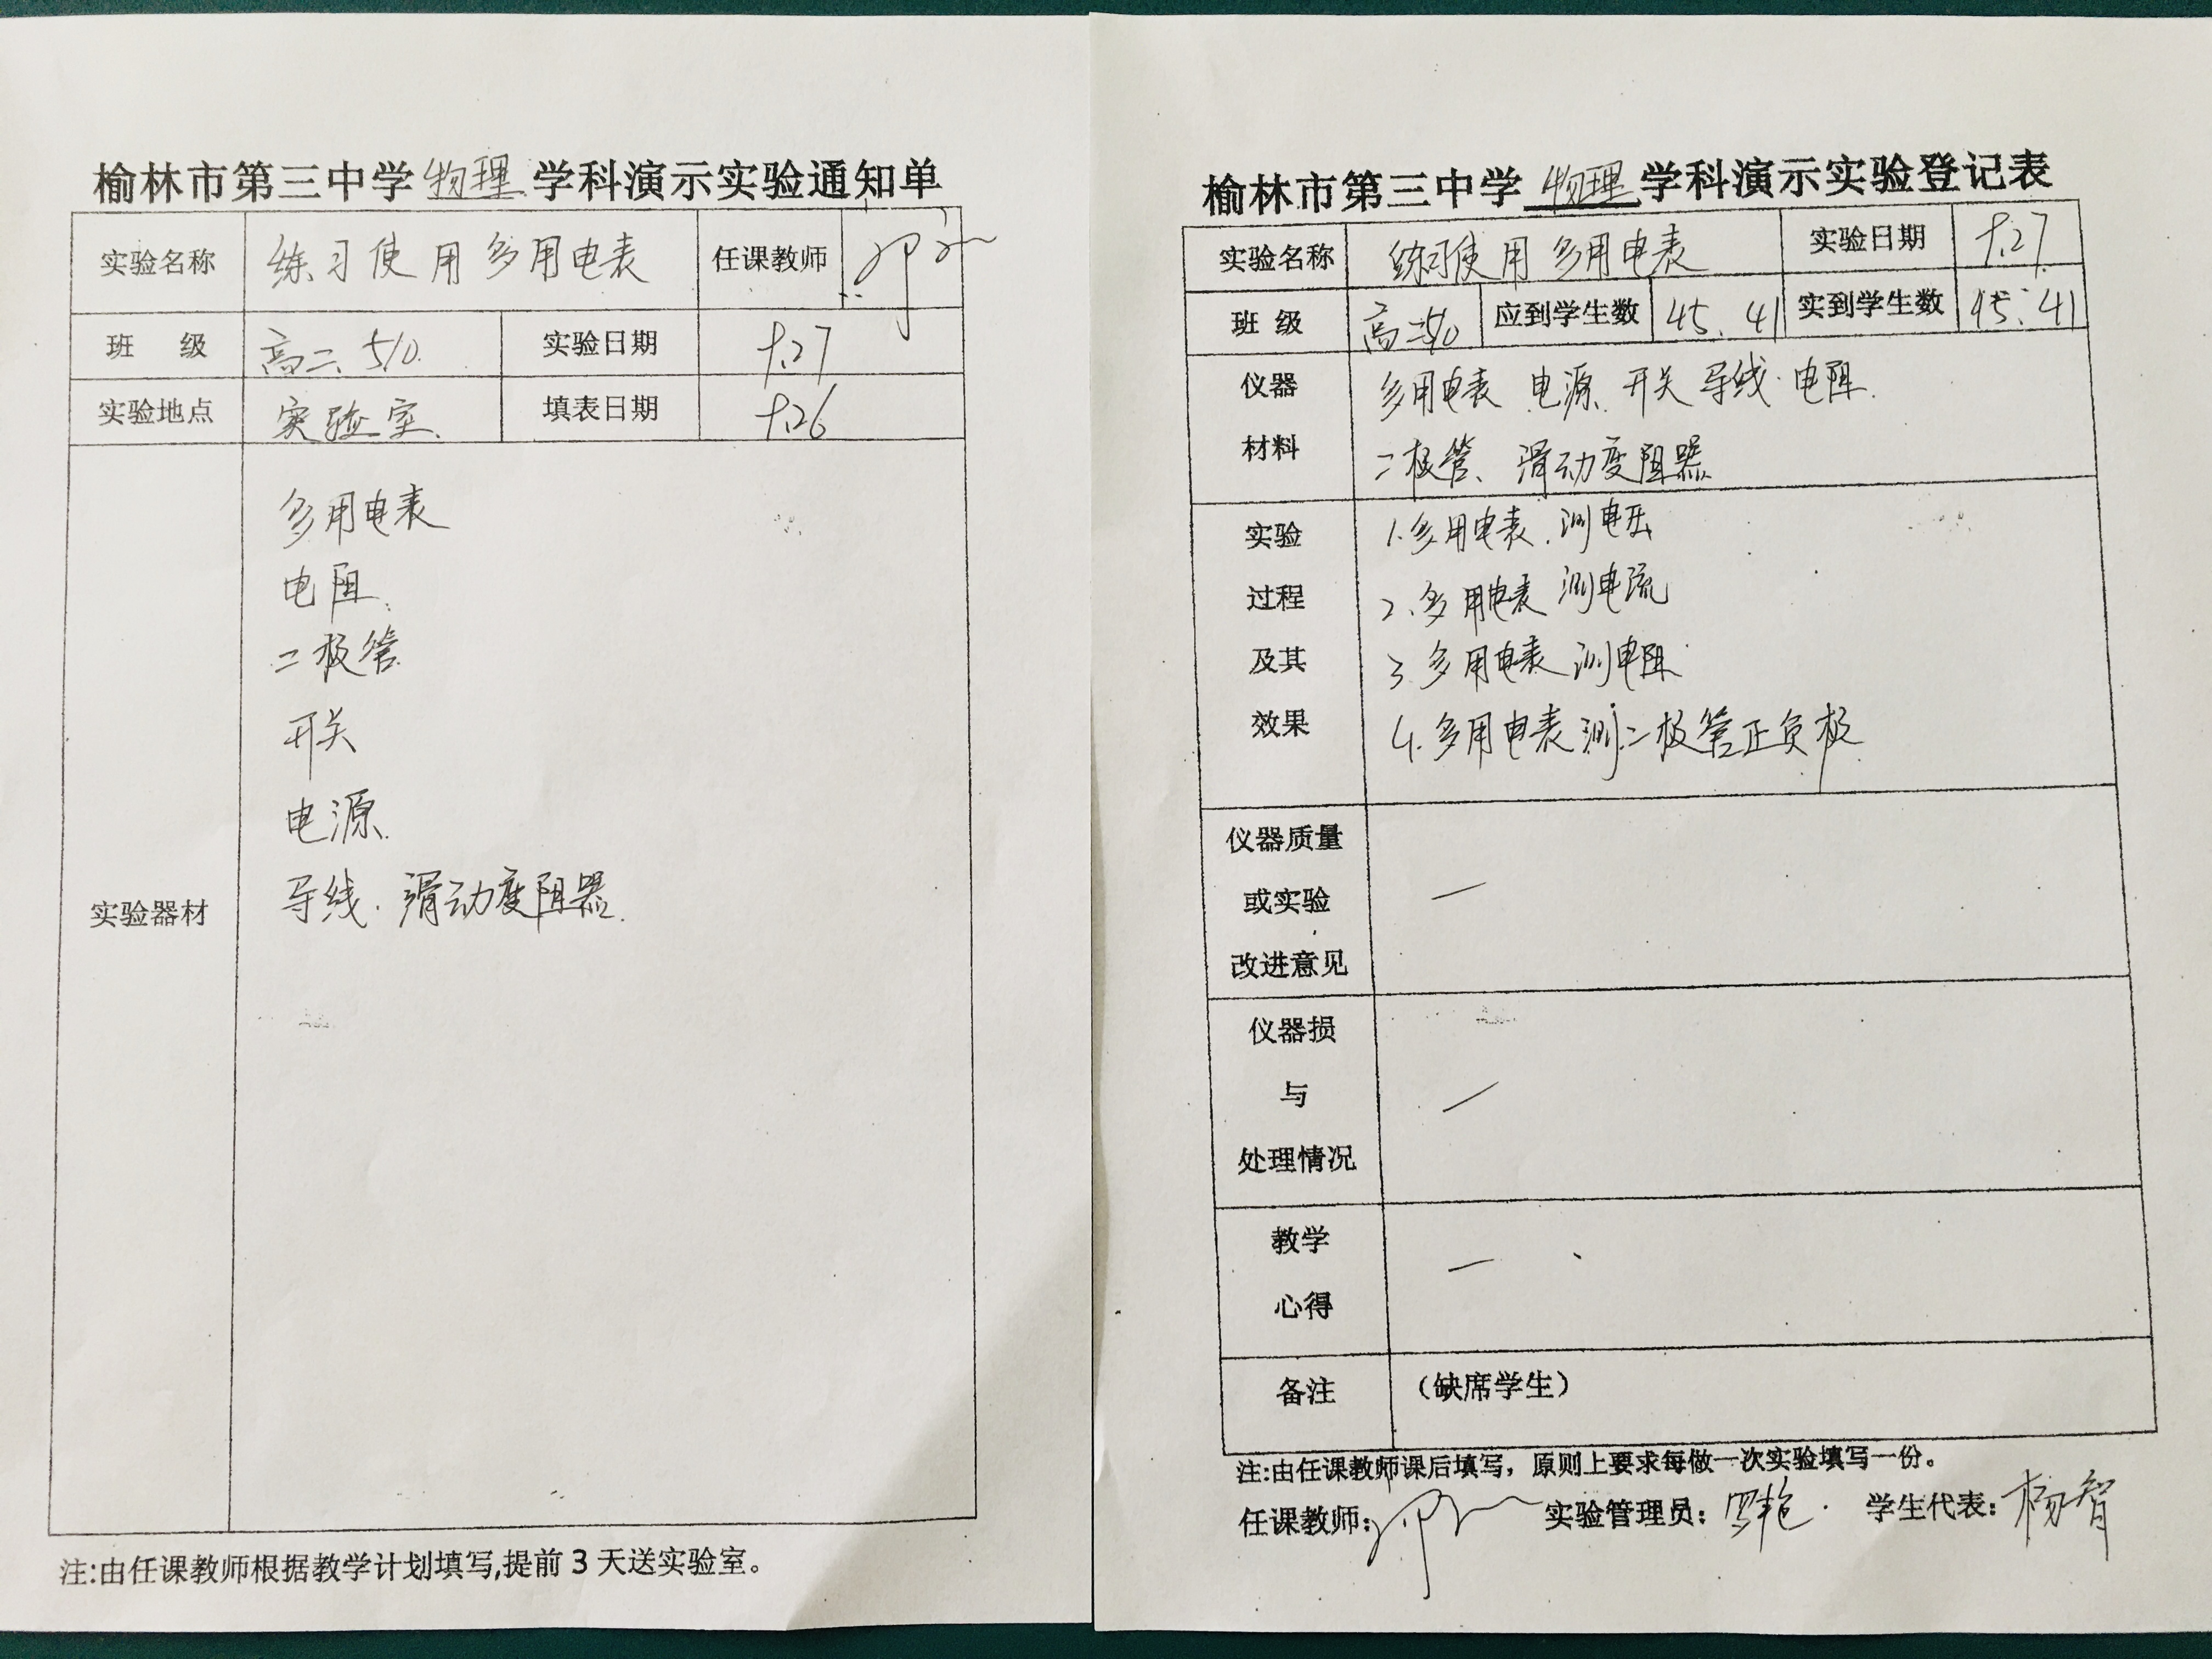 榆林市第三中学物理学科演示实验通知单
实验名称 练习使用多用电表 任课教师
班 级 高二、5/10. 实验日期 9.27
实验地点 实验室. 填表日期 9.26
实验器材
多用电表
电阻.
二极管.
开关
电源.
导线.滑动变阻器.
注:由任课教师根据教学计划填写,提前3天送实验室。
榆林市第三中学物理学科演示实验登记表
实验名称 练习使用多用电表 实验日期 9.27.
班 级 高二 应到学生数 45.41 实到学生数 45.41
仪器 多用电表 电源.开关 导线.电阻.
材料 二极管、滑动变阻器
实验 1.多用电表.测电压
过程 2.多用电表 测电流
及其 3.多用电表 测电阻
效果 4.多用电表测二极管正负极.
仪器质量
或实验 —
改进意见
仪器损
与 —
处理情况
教学 —
心得
备注 （缺席学生）
注:由任课教师课后填写，原则上要求每做一次实验填写一份。
任课教师: 实验管理员：罗艳. 学生代表：杨智